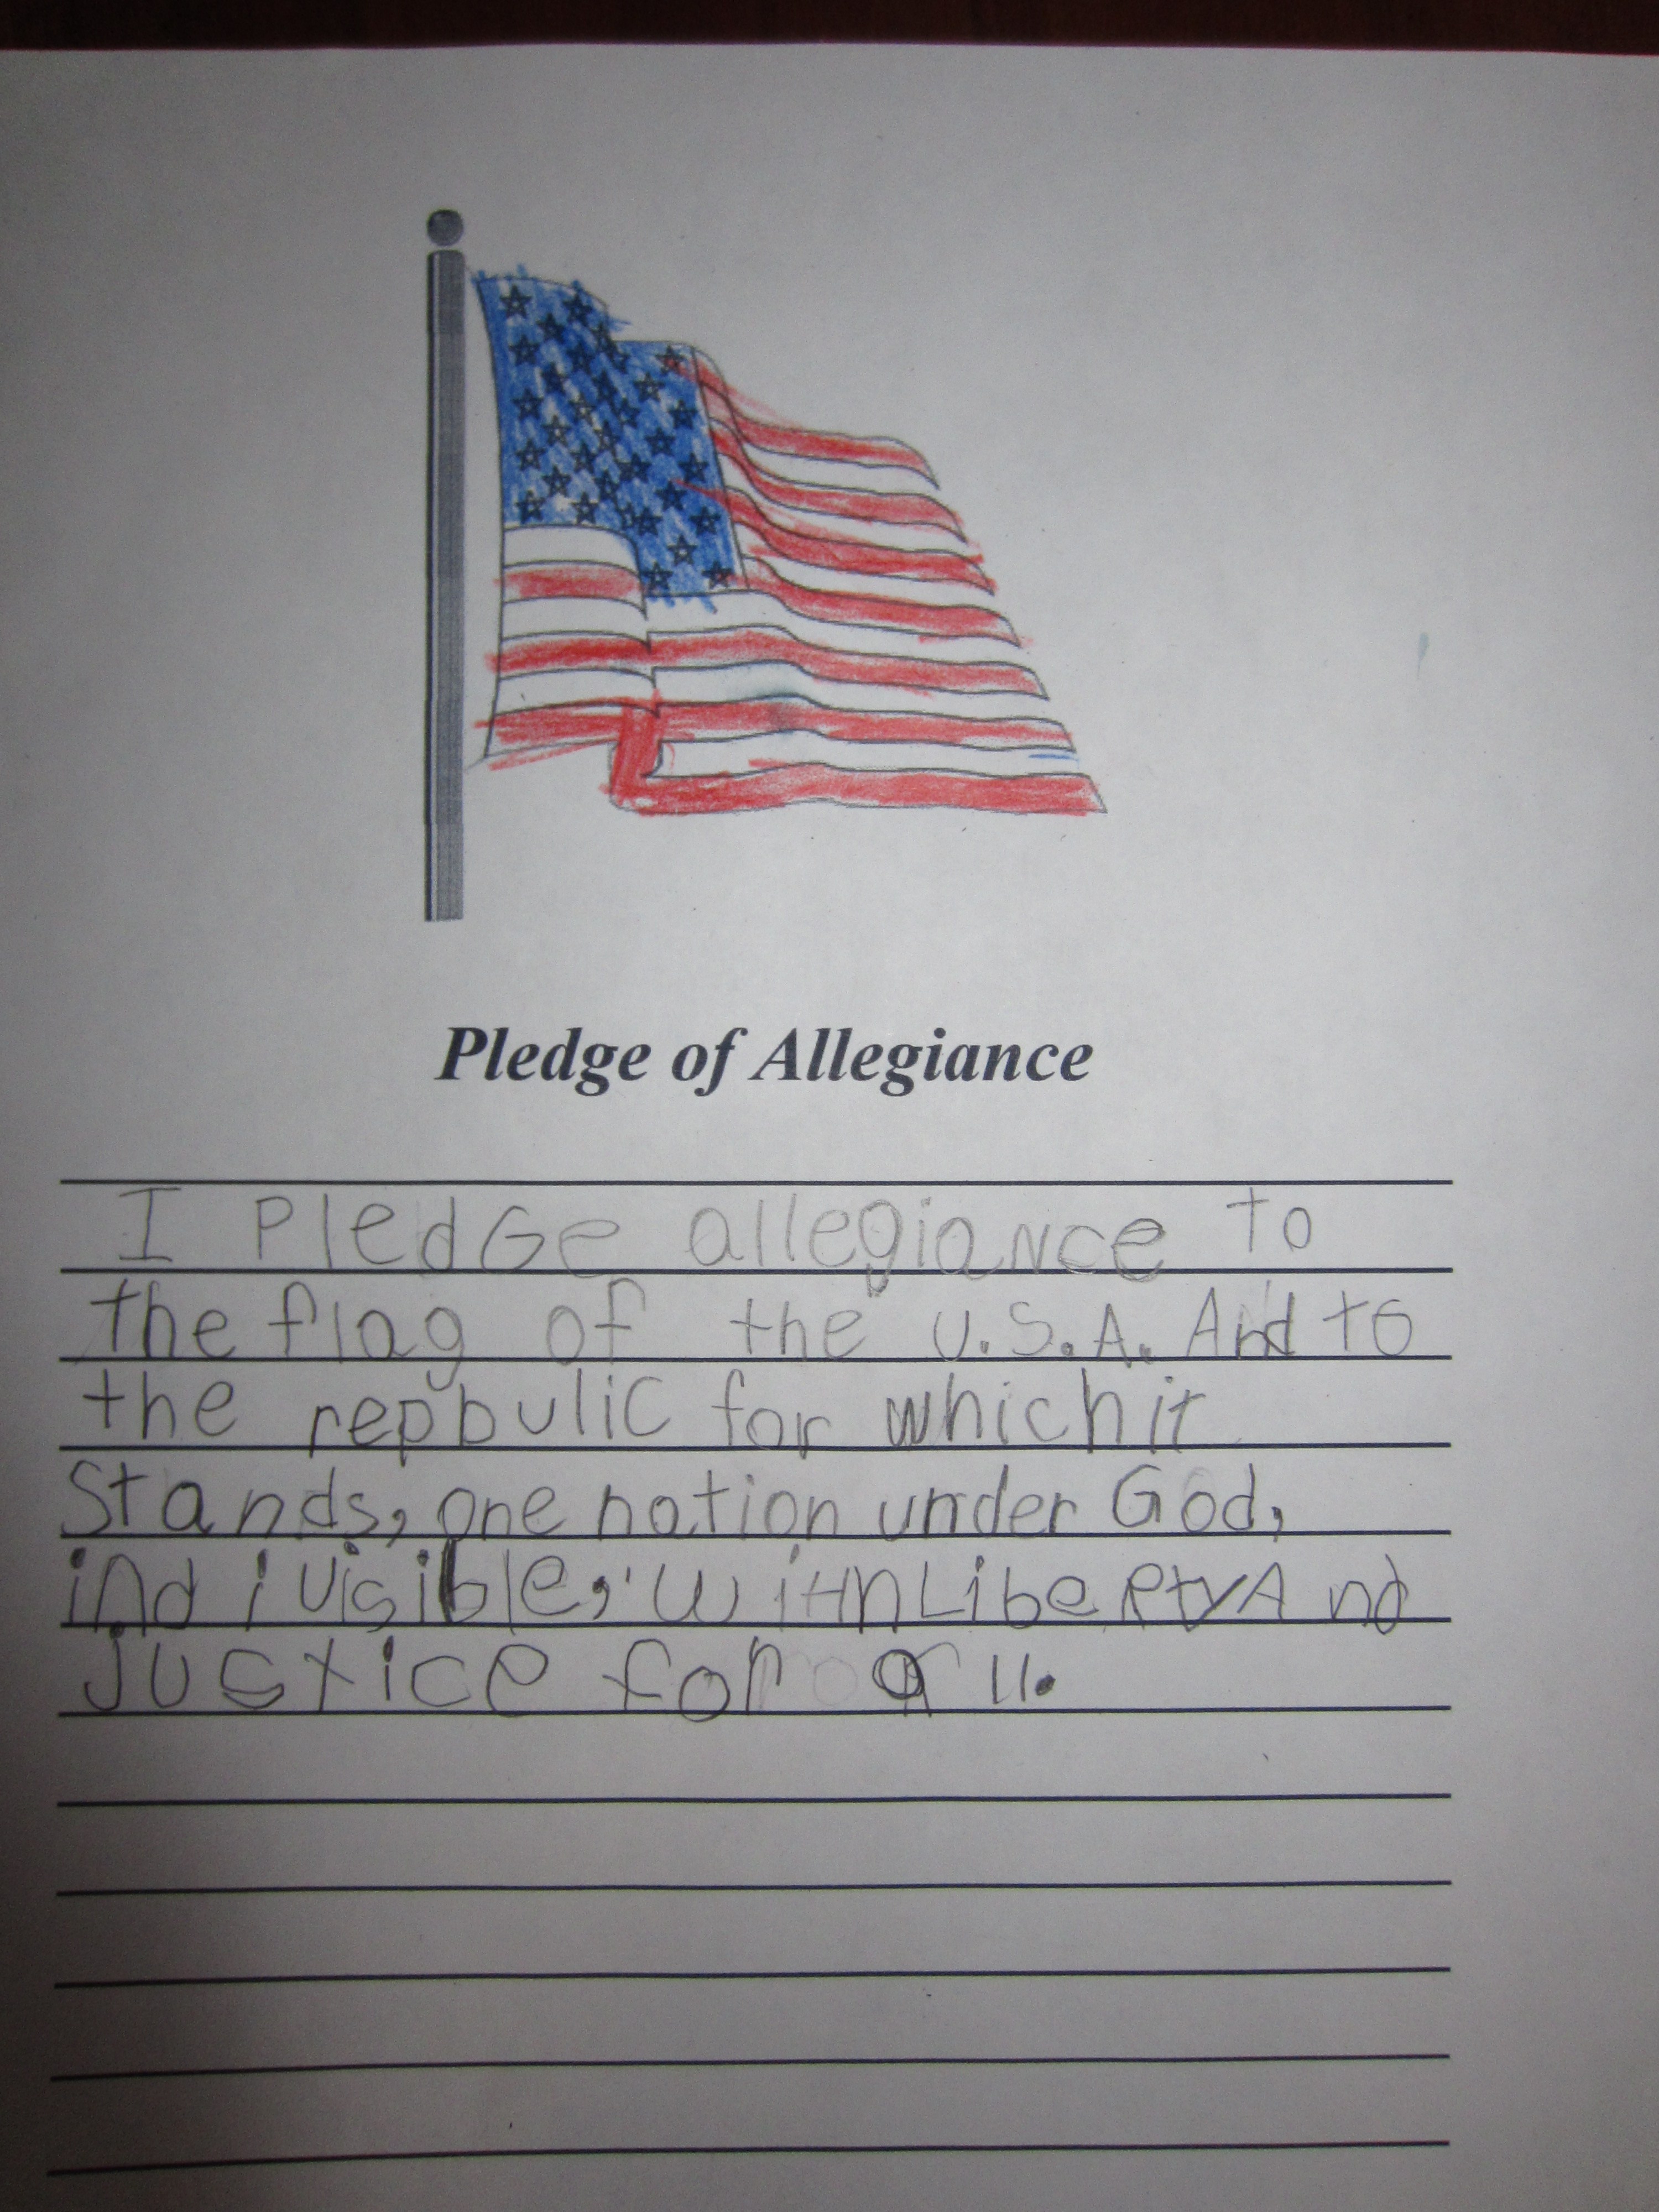 Pledge of Allegiance
I PledGe allegiaNce to
the flag of the U.S.A. And to
the repbulic for which it
Stands, one nation under God,
indivisible, with LibeRty And
justice for all.